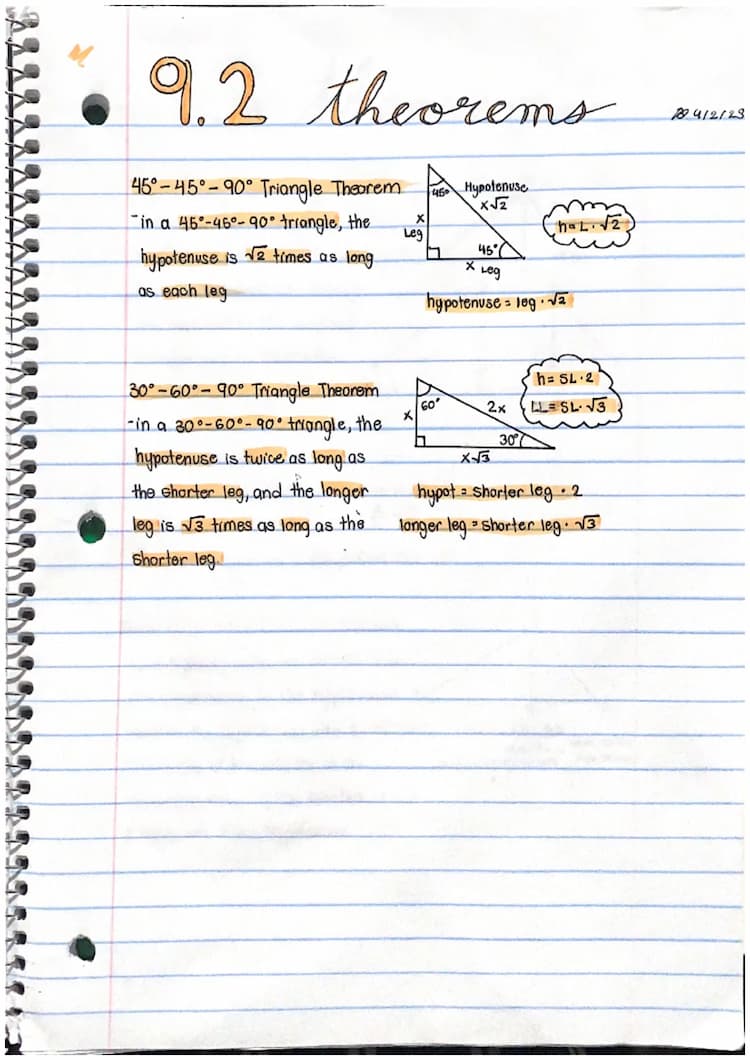 9.2 theorems
4/2/23
45°-45°-90° Triangle Theorem
-in a 45°-45°-90° triangle, the
hypotenuse is √2 times as long
as each leg
45°
Hypotenuse
x√2
x
Leg
45°
x Leg
h=L·√2
hypotenuse = leg·√2
30°-60°-90° Triangle Theorem
-in a 30°-60°-90° triangle, the
hypotenuse is twice as long as
the shorter leg, and the longer
leg is √3 times as long as the
shorter leg.
60°
x
2x
30°
x√3
h= SL·2
LL= SL·√3
hypot = shorter leg · 2
longer leg = shorter leg · √3